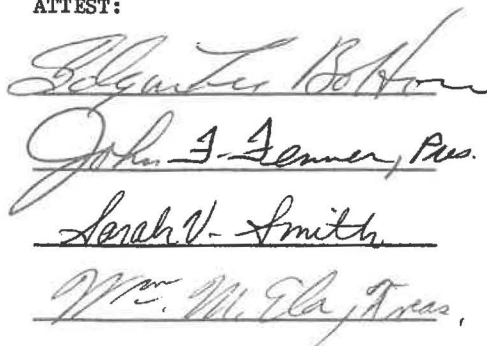 ATTEST:
Edgar Lee Bottom
John F. Fenner, Pres.
Sarah V. Smith
Wm. M. Ela, Treas.